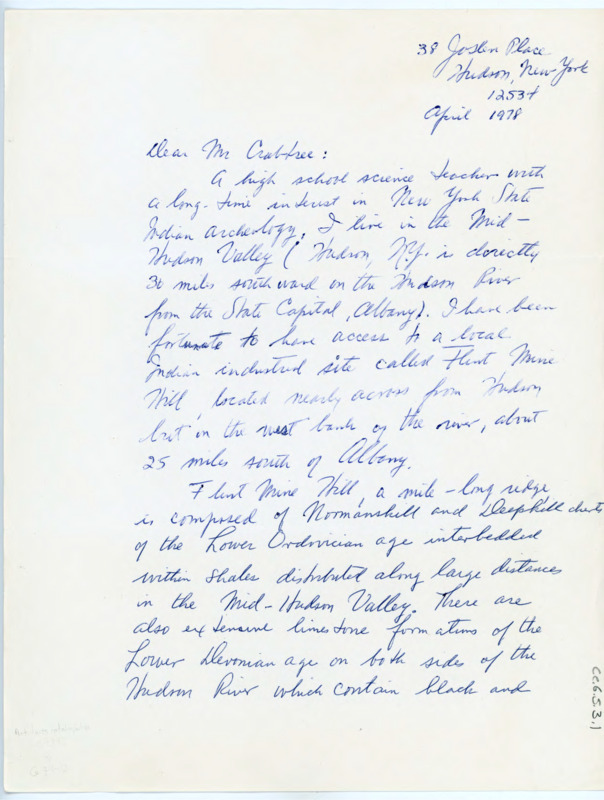 38 Joslen Place
Hudson, New York
12534
April 1978
Dear Mr Crabtree:
A high school science teacher with
a long-time interest in New York State
Indian archeology, I live in the Mid-
Hudson Valley (Hudson, N.Y. is directly
30 miles southward on the Hudson River
from the State Capital, Albany). I have been
fortunate to have access to a local
Indian industrial site called Flint Mine
Hill, located nearly across from Hudson
but on the west bank of the river, about
25 miles south of Albany.
Flint Mine Hill, a mile-long ridge,
is composed of Normanskill and Deepkill cherts
of the Lower Ordovician age interbedded
within shales distributed along large distances
in the Mid-Hudson Valley. There are
also extensive limestone formations of the
Lower Devonian age on both sides of the
Hudson River which contain black and
CC.6.5.3.1